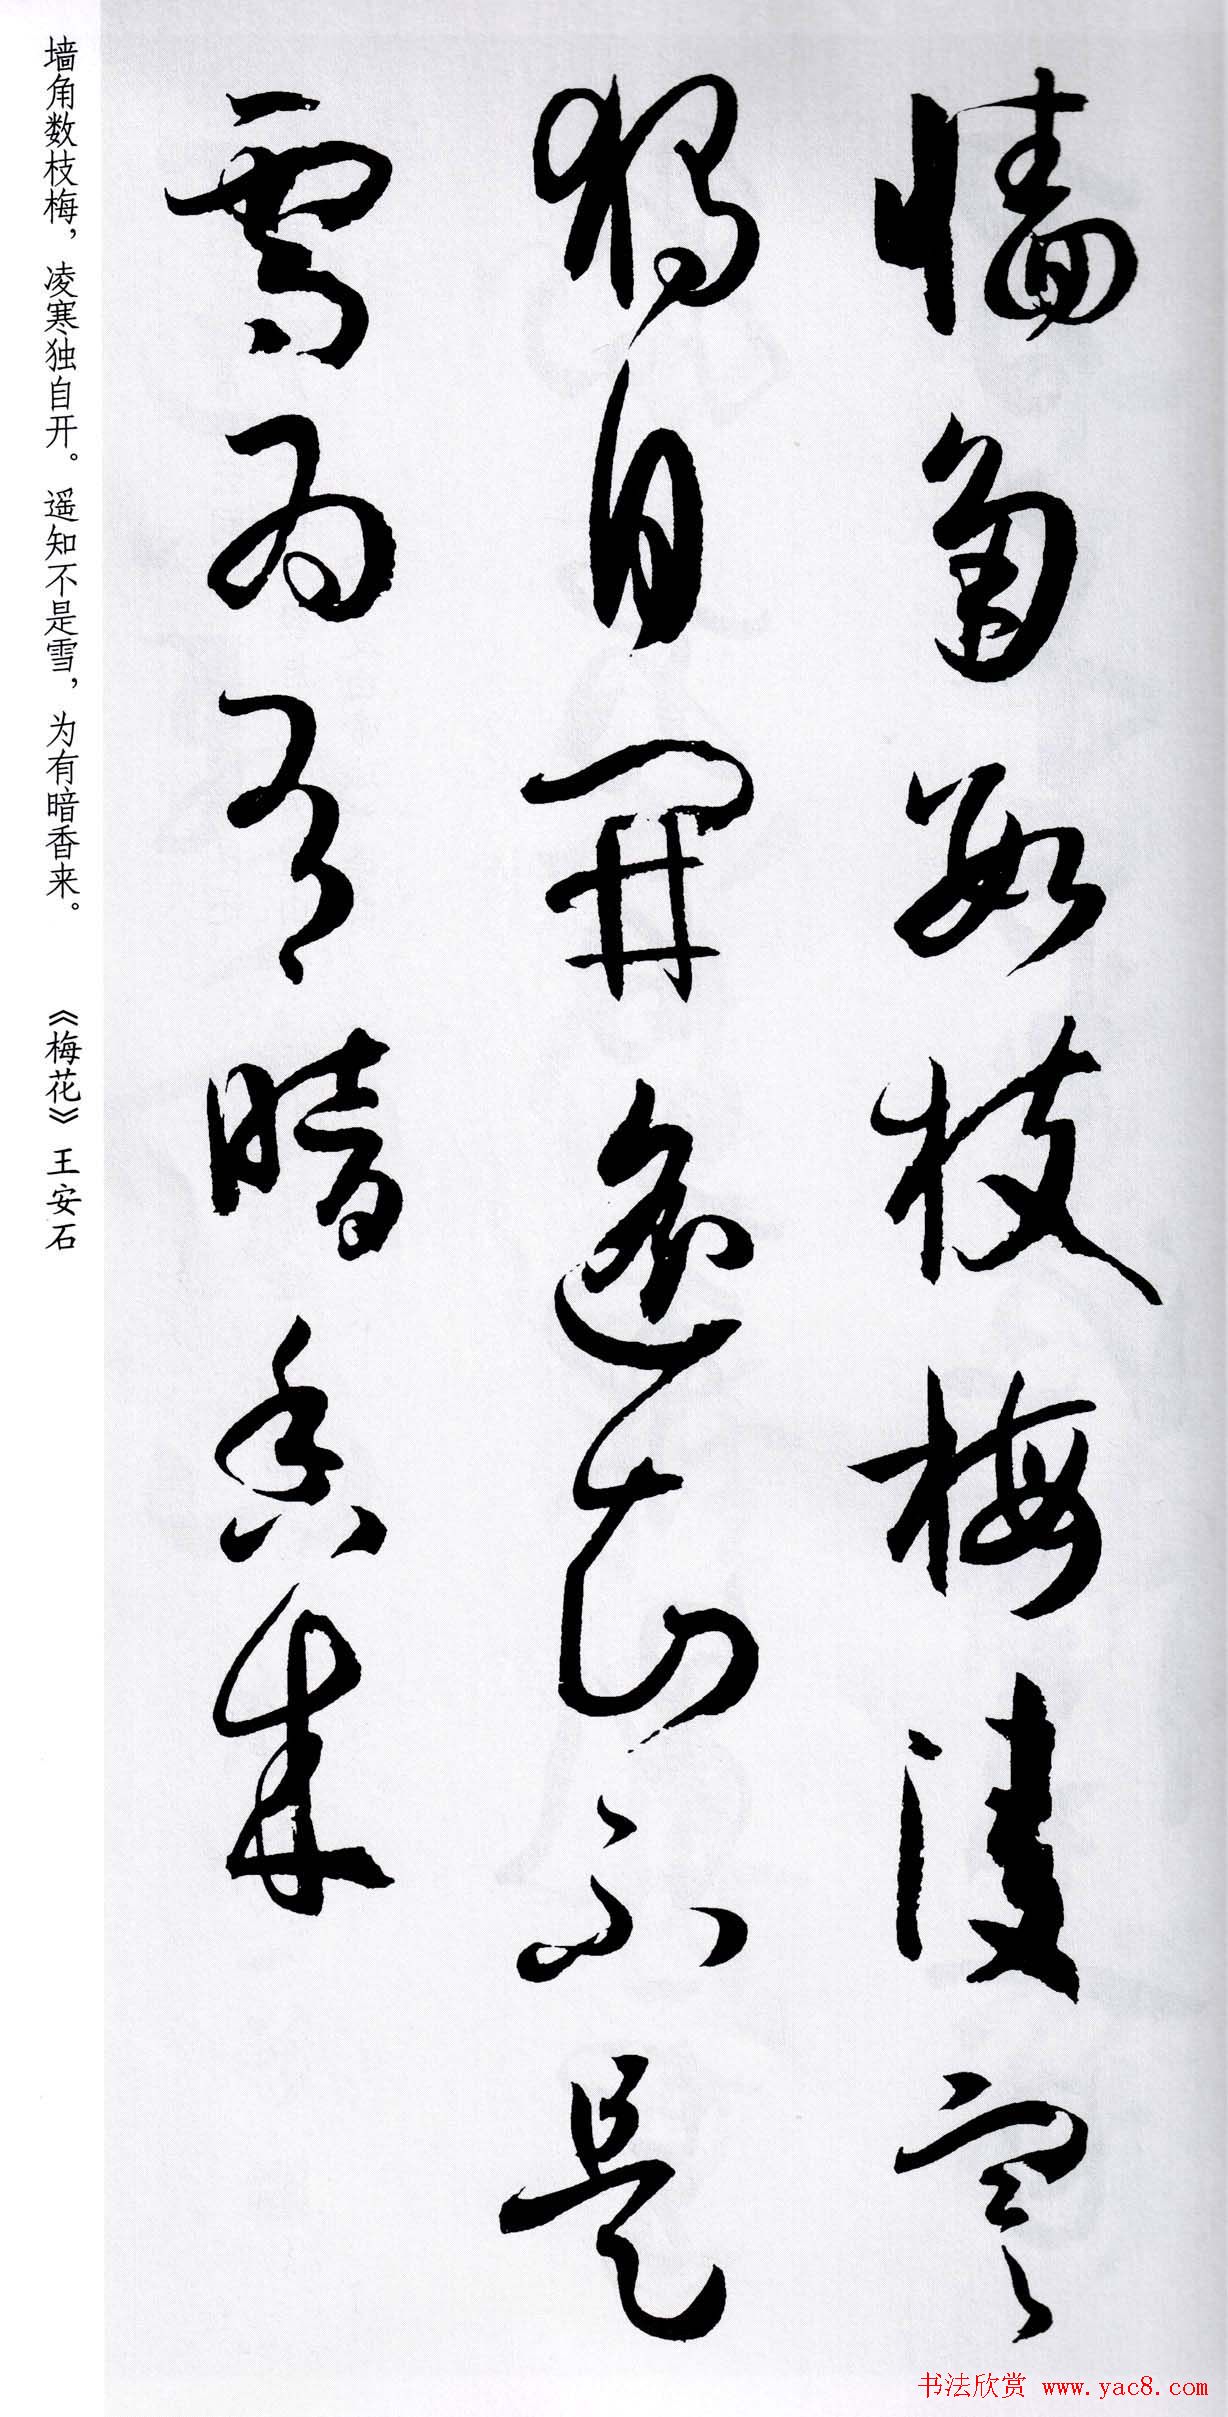 墻角數枝梅凌寒
獨自開遙知不是
雪為有暗香來
墙角数枝梅，凌寒独自开。遥知不是雪，为有暗香来。 《梅花》王安石
书法欣赏 www.yac8.com